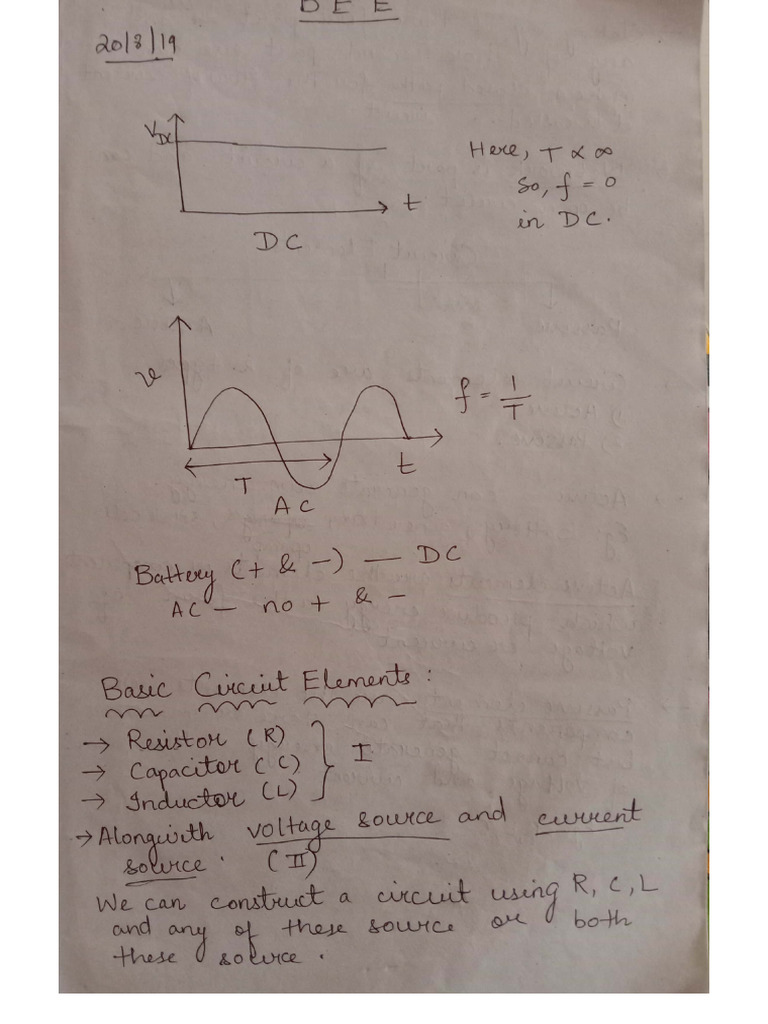 BEE
20/8/19
VDC
t
DC
Here, T ∝ ∞
So, f = 0
in DC.
v
T
t
AC
f = 1/T
Battery (+ & -) — DC
AC — no + & -
Basic Circuit Elements :
→ Resistor (R)
→ Capacitor (C)
→ Inductor (L)
} I
→ Alongwith voltage source and current
source. (II)
We can construct a circuit using R, C, L
and any of these source or both
these source.